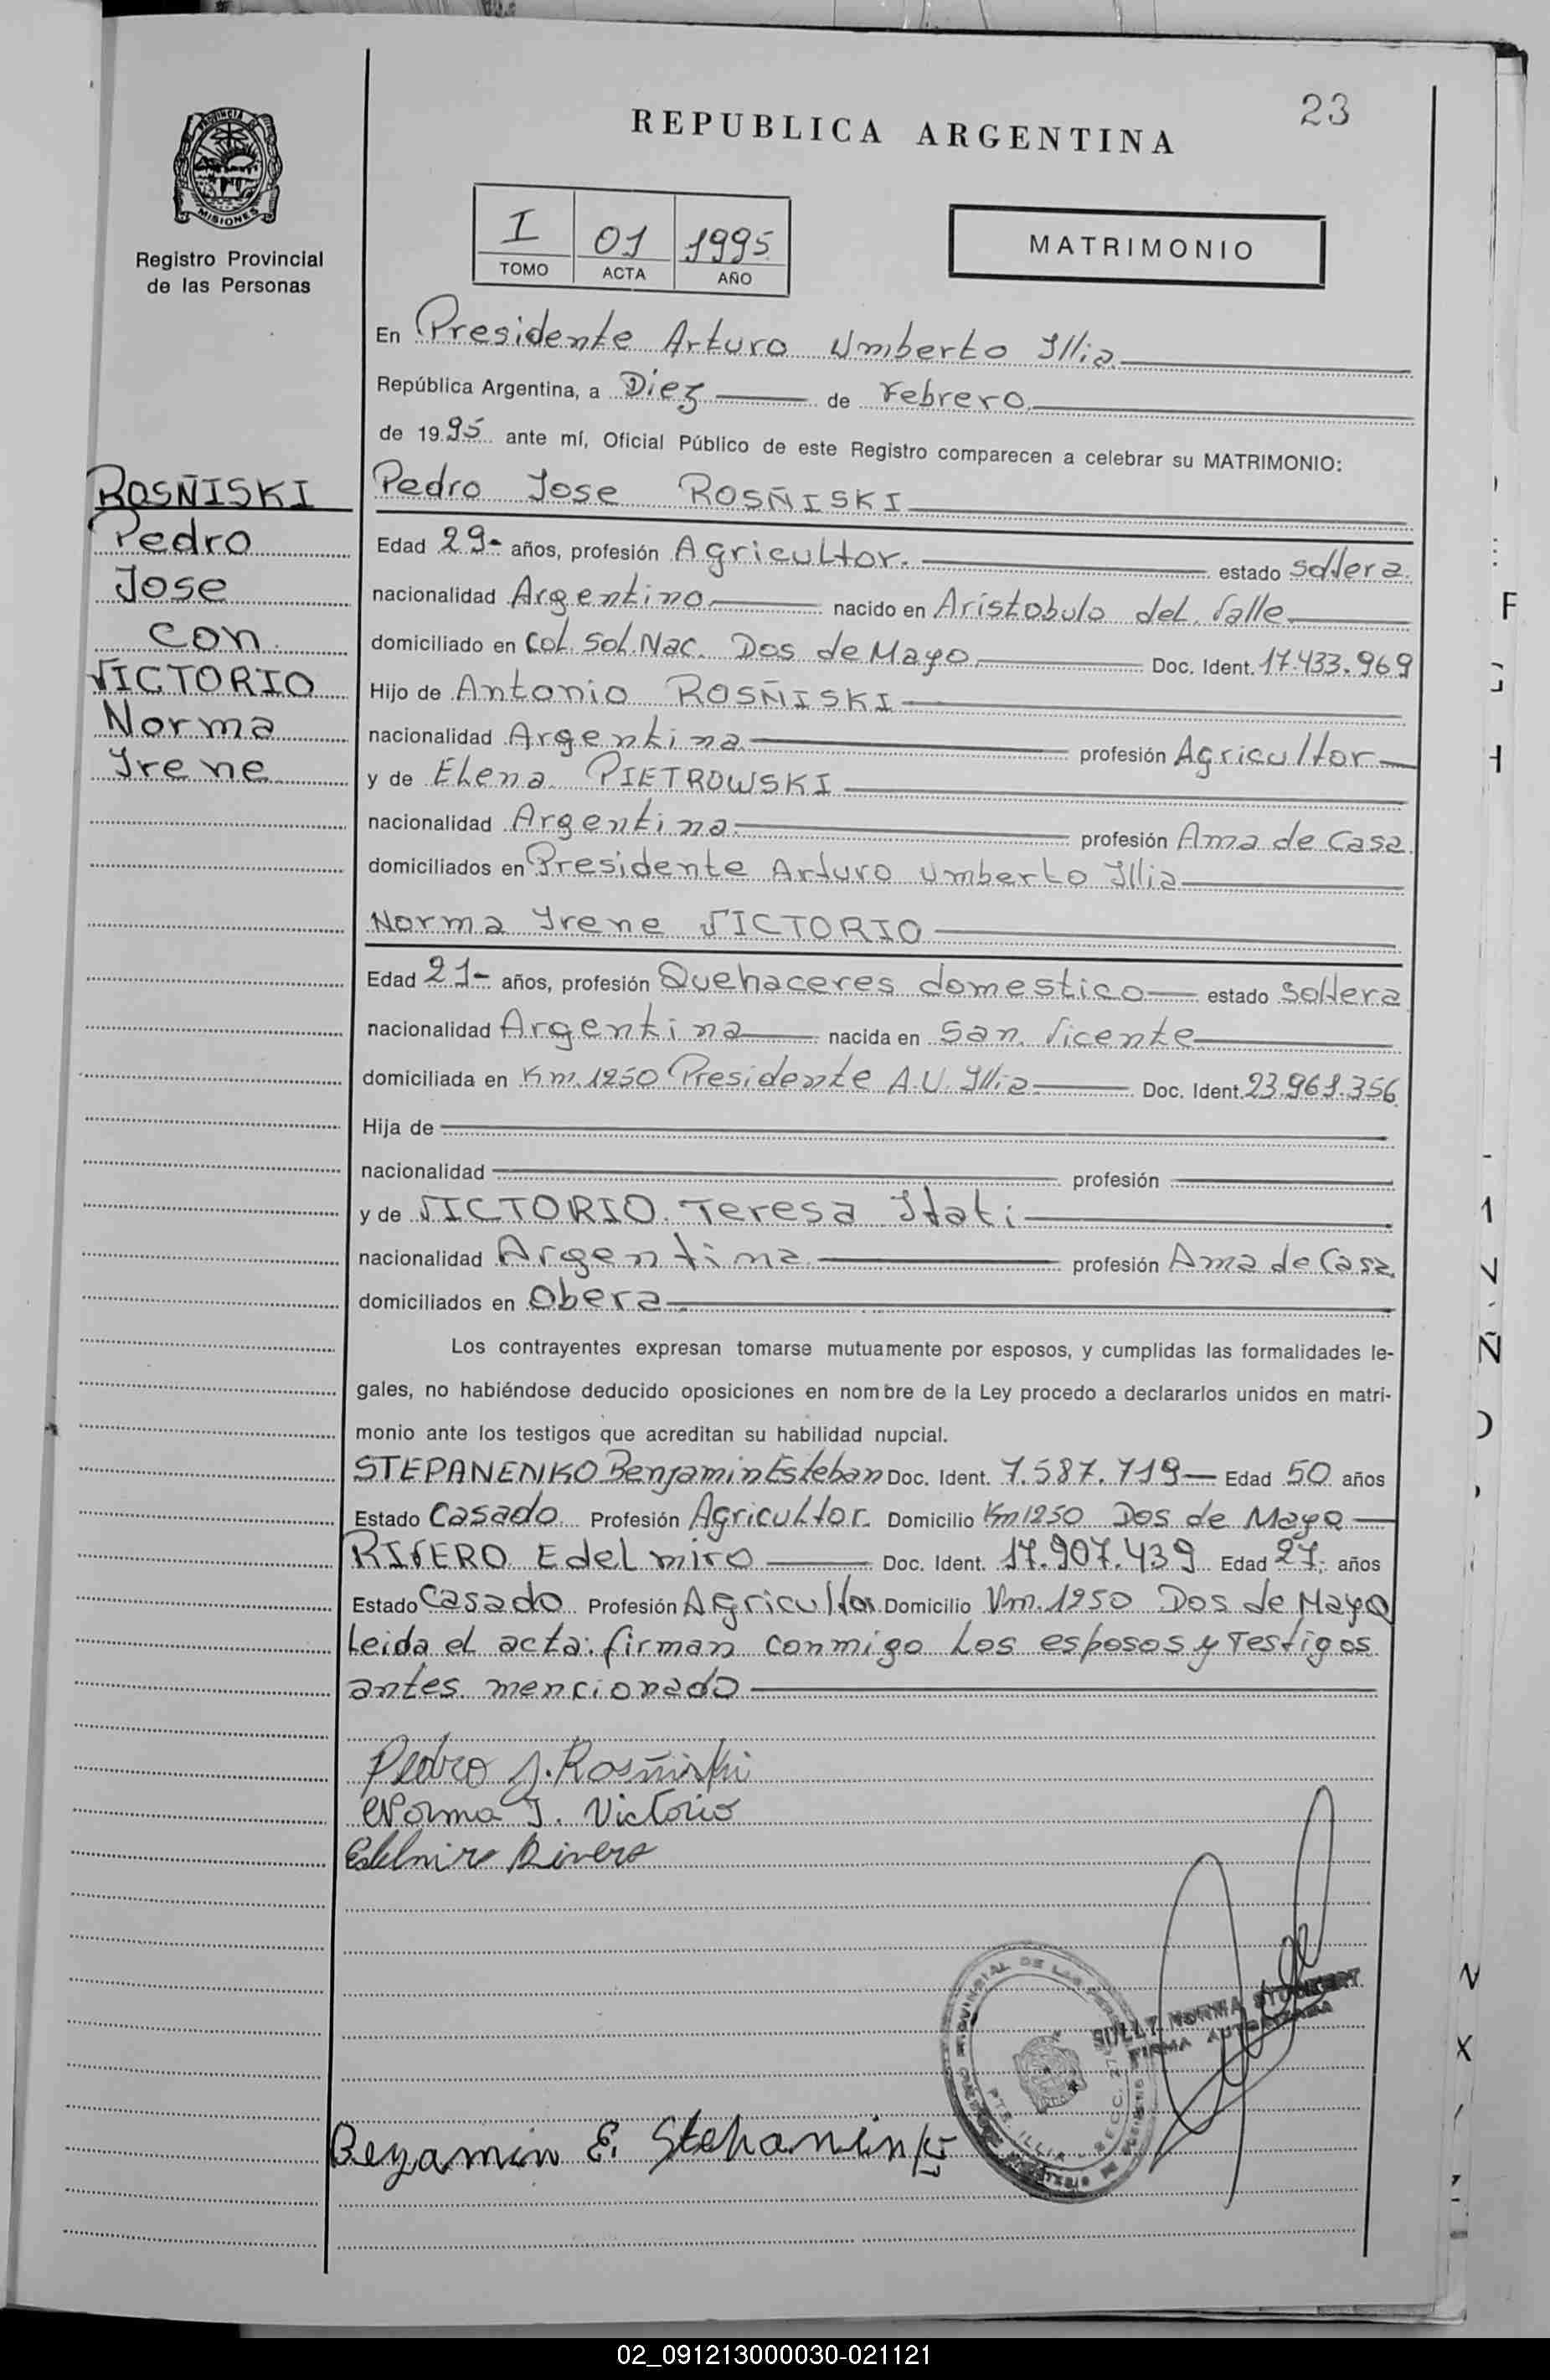 23
REPUBLICA ARGENTINA
PROVINCIA DE
MISIONES
Registro Provincial
de las Personas
I 01 1995
TOMO ACTA AÑO
MATRIMONIO
En Presidente Arturo Umberto Illia
República Argentina, a Diez de Febrero
de 1995 ante mí, Oficial Público de este Registro comparecen a celebrar su MATRIMONIO:
ROSÑISKI
Pedro
Jose
con
VICTORIO
Norma
Irene
Pedro Jose ROSÑISKI
Edad 29- años, profesión Agricultor. estado soltera
nacionalidad Argentino nacido en Aristobulo del Valle
domiciliado en Col. Sol. Nac. Dos de Mayo Doc. Ident. 17.433.969
Hijo de Antonio ROSÑISKI
nacionalidad Argentina profesión Agricultor
y de Elena PIETROWSKI
nacionalidad Argentina profesión Ama de Casa
domiciliados en Presidente Arturo Umberto Illia
Norma Irene VICTORIO
Edad 21- años, profesión Quehaceres domestico estado soltera
nacionalidad Argentina nacida en San Vicente
domiciliada en Km. 1250 Presidente A.U. Illia Doc. Ident. 23.961.356
Hija de
nacionalidad profesión
y de VICTORIO Teresa Itati
nacionalidad Argentina profesión Ama de Casa
domiciliados en Obera
Los contrayentes expresan tomarse mutuamente por esposos, y cumplidas las formalidades le-
gales, no habiéndose deducido oposiciones en nombre de la Ley procedo a declararlos unidos en matri-
monio ante los testigos que acreditan su habilidad nupcial.
STEPANENKO Benjamin Esteban Doc. Ident. 7.587.719 Edad 50 años
Estado Casado Profesión Agricultor Domicilio Km 1250 Dos de Mayo
RIVERO Edelmiro Doc. Ident. 17.907.439 Edad 27 años
Estado Casado Profesión Agricultor Domicilio Km. 1250 Dos de Mayo
Leida el acta: firman conmigo los esposos y Testigos
antes mencionado
Pedro J. Rosñiski
Norma I. Victorio
Edelmiro Rivero
PROVINCIAL DE LAS
PTE. ILLIA SECC.
NORMA
FIRMA AUTORIZADA
Benjamin E.
02_091213000030-021121